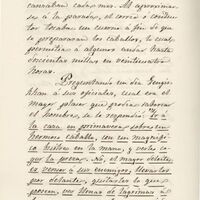 cansaban cada mes. Al aproximar-
se a la parada, el correo o conduc-
tor tocaba un cuerno a fin de que
se preparasen los caballos, lo cual
permitía a algunos andar hasta
doscientas millas en veinticuatro
horas.
Preguntando un día Gengis-
khan á sus oficiales, cual era el
mayor placer que podía saborear
el hombre, se le respondió: Ir á
la caza en primavera, sobre un
hermoso caballo, con un magnífi-
co halcón en la mano, y verle co-
ger la presa. No, el mayor deleite
es vencer a sus enemigos, llevarlos
por delante, quitarles lo que
poseen, ver llenas de lágrimas á